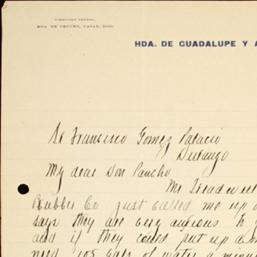 DIRECCION POSTAL
HDA. DE GUADALUPE Y A
Sr Francisco Gomez Palacio
Durango
My dear Don Pancho
Mr Treadwell
Rubber Co just called me up a
says they are very anxious to
and if they could put up a
need 105 gals of water a minu